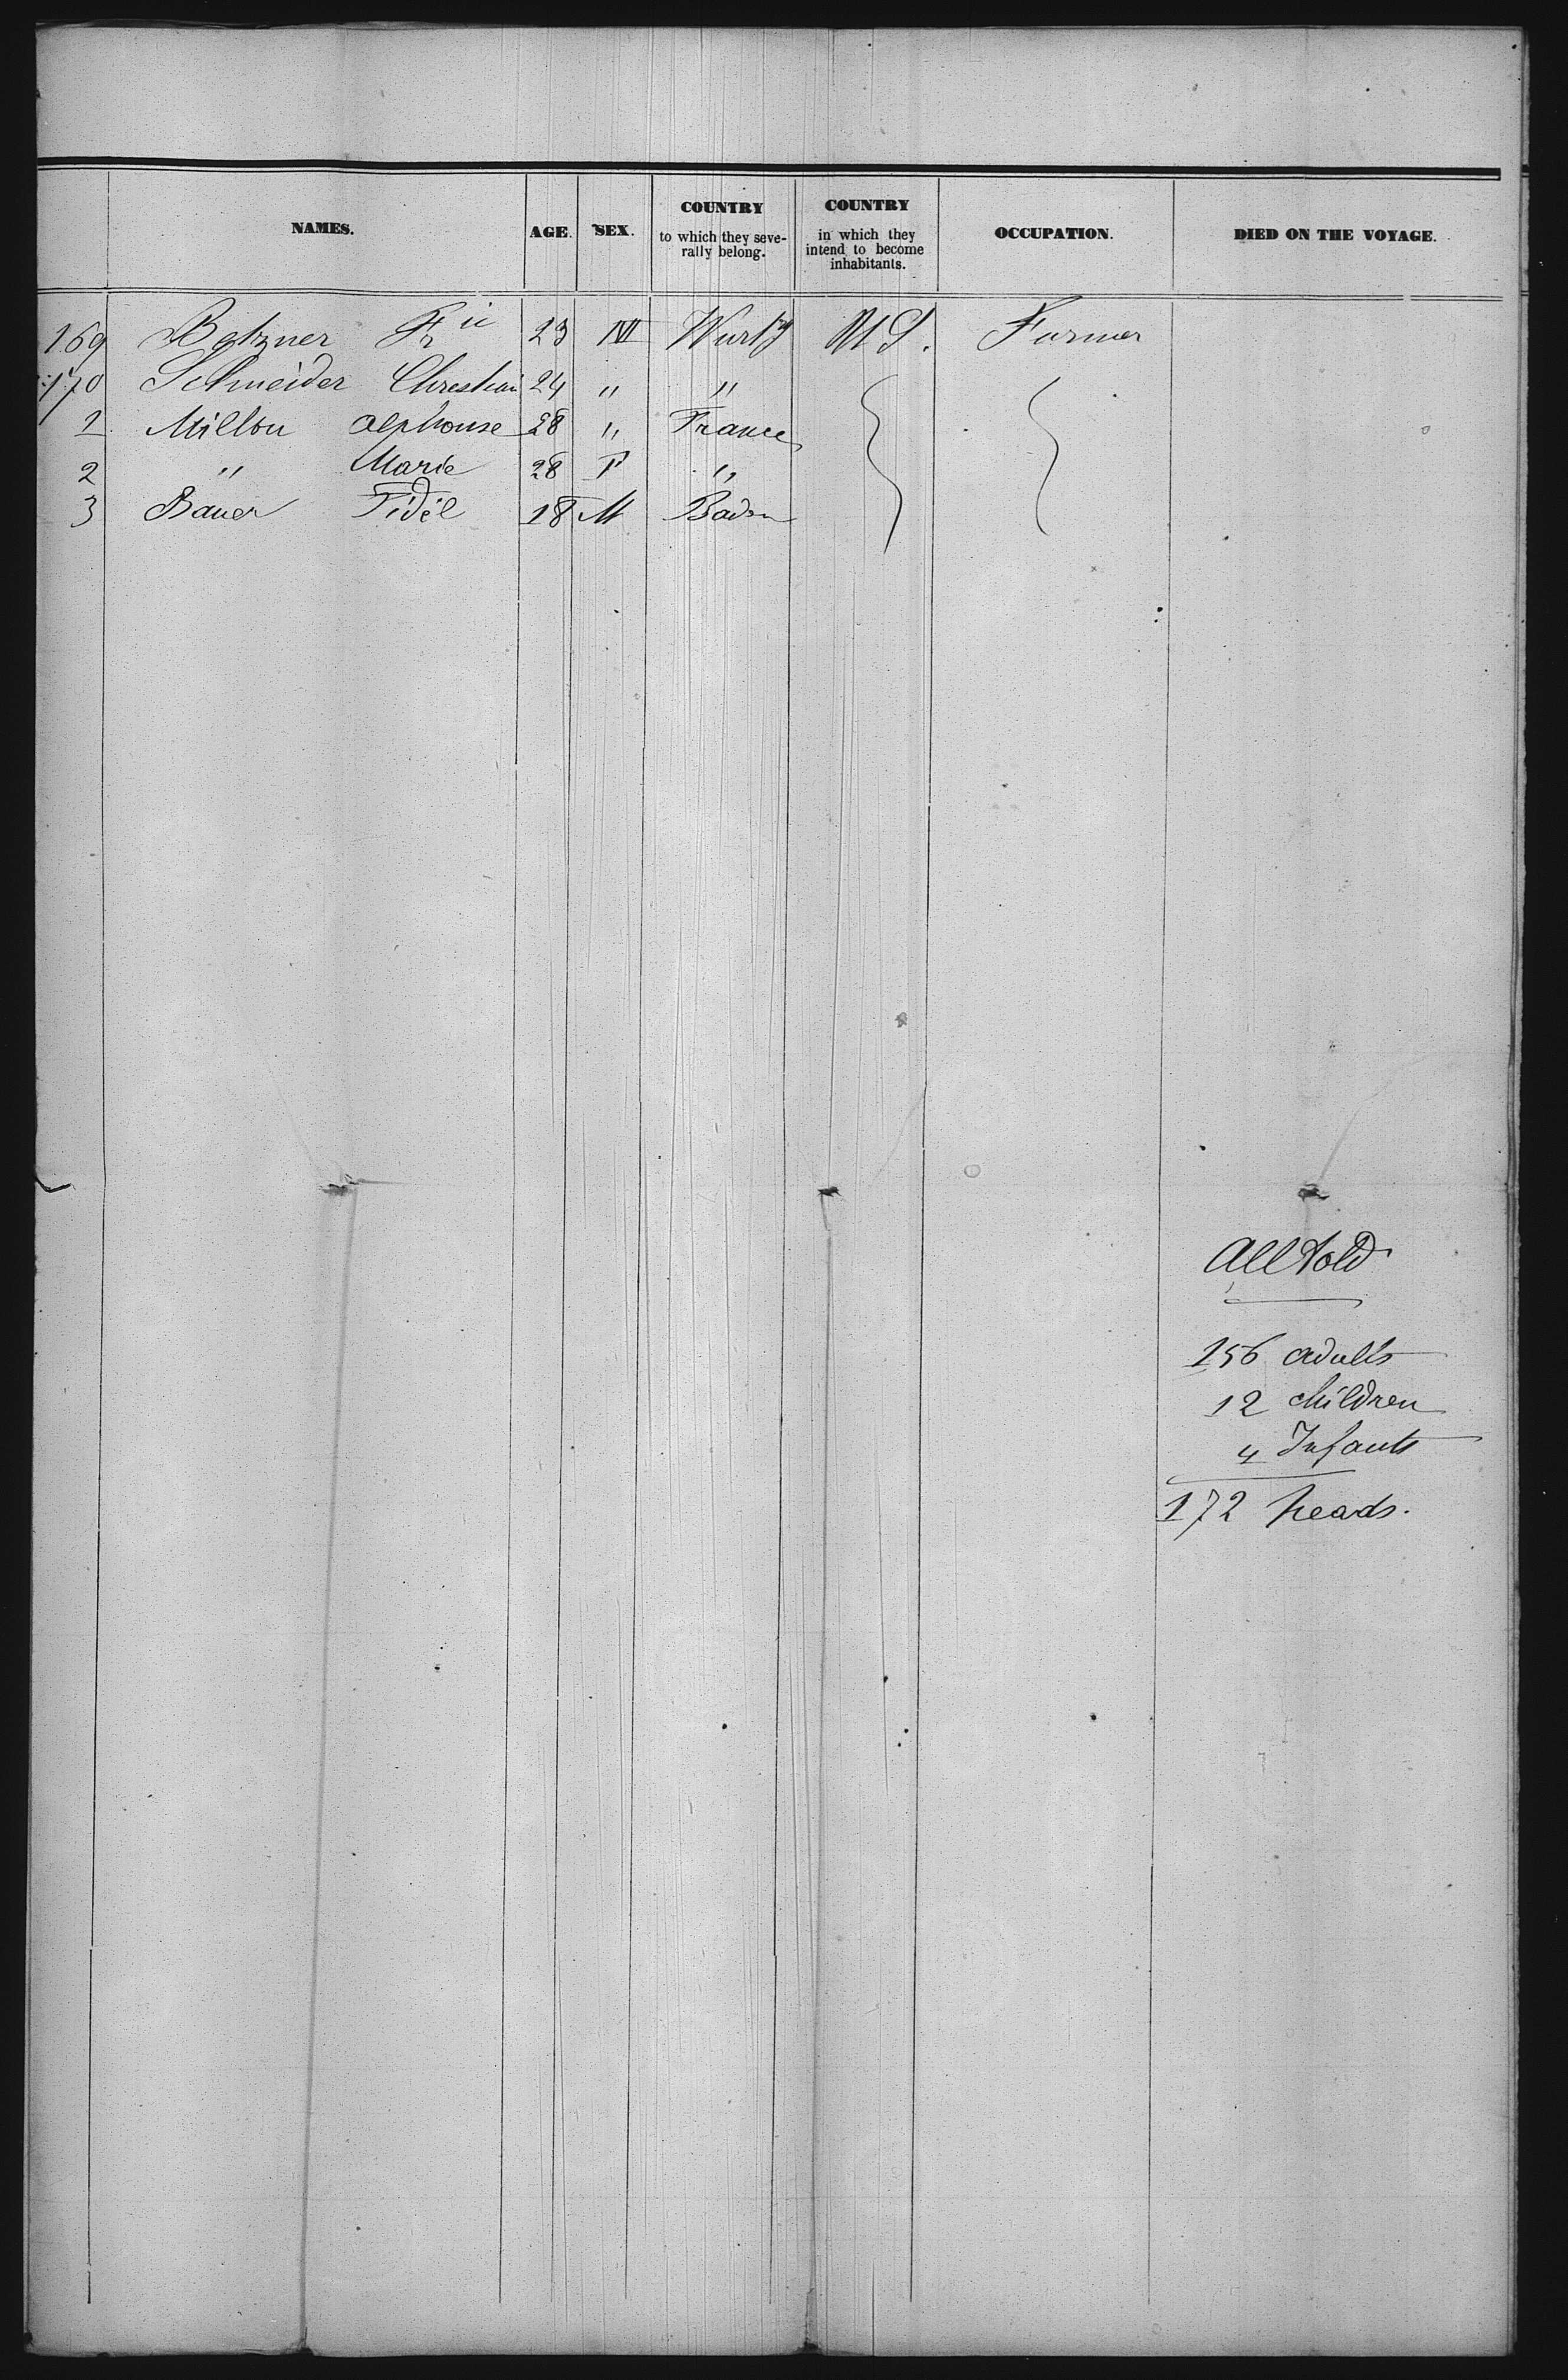 NAMES. AGE. SEX. COUNTRY to which they seve-rally belong. COUNTRY in which they intend to become inhabitants. OCCUPATION. DIED ON THE VOYAGE.
169 Betzner 23 M Wurtg U S. Farmer
170 Schneider Christian 24 " "
1 Millou Alphonse 28 " France
2 " Marie 28 F "
3 Bauer Fidel 18 M Baden
All told
156 adults
12 children
4 Infants
172 heads.